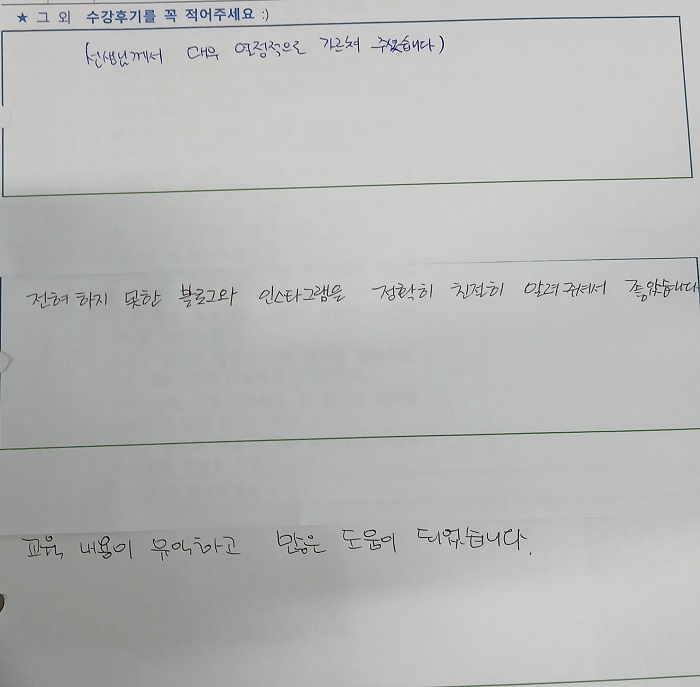 ★ 그 외 수강후기를 꼭 적어주세요 :)
(선생님께서 대우 열정적으로 가르쳐 주셨습니다)
전혀 하지 못한 블로그와 인스타그램을 정확히 친절히 알려줘서 좋았습니다
교육 내용이 유익하고 많은 도움이 되었습니다.